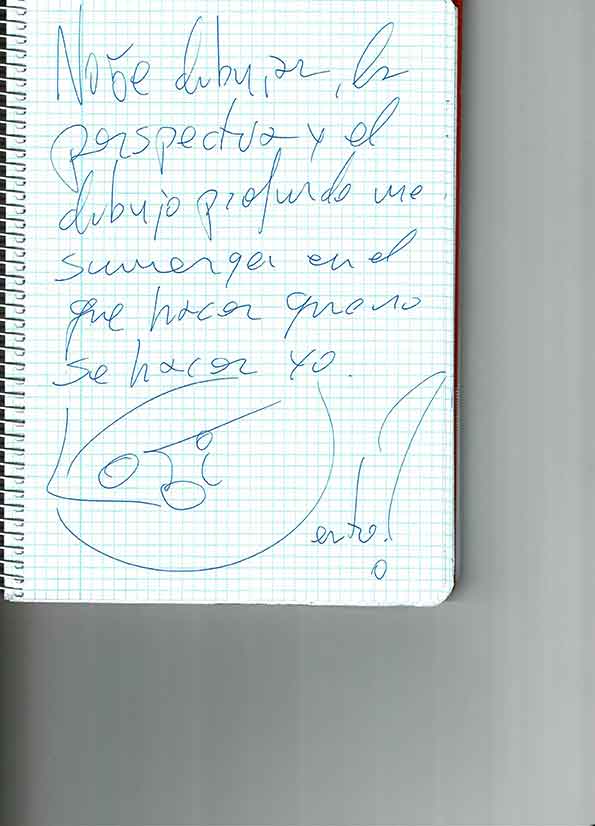 No se dibujar, la
perspectva y el
dibujo profundo me
sumerge en el
que hacer que no
se hacer yo.
esto!